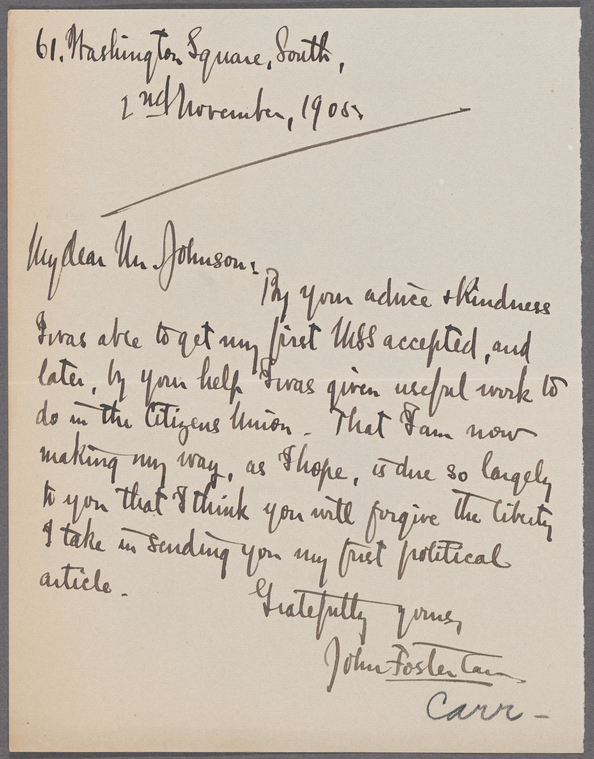 61. Washington Square, South,
2nd November, 1905.
My dear Mr. Johnson:
By your advice & kindness
I was able to get my first MSS accepted, and
later, by your help I was given useful work to
do in the Citizens Union. That I am now
making my way, as I hope, is due so largely
to you that I think you will forgive the liberty
I take in sending you my first political
article.
Gratefully yours,
John Foster Carr
Carr -